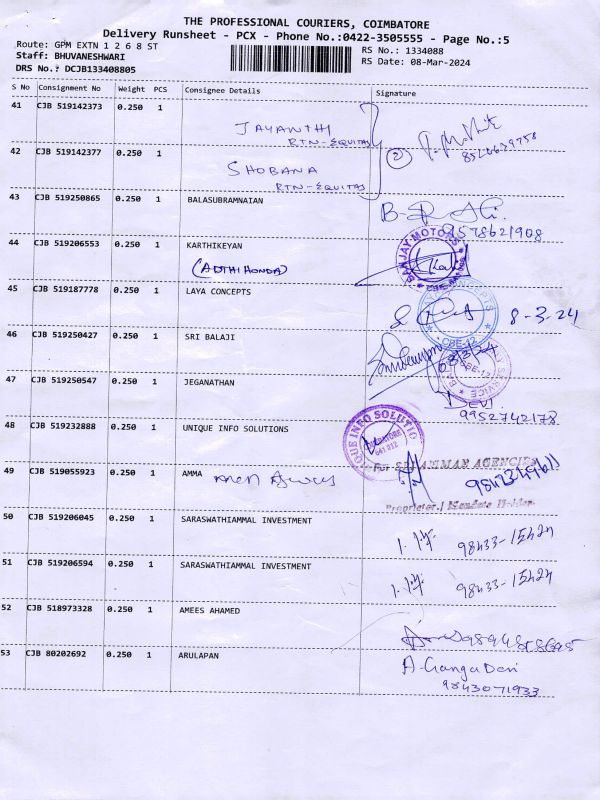 THE PROFESSIONAL COURIERS, COIMBATORE
Delivery Runsheet - PCX - Phone No.:0422-3505555 - Page No.:5
Route: GPM EXTN 1 2 6 8 ST
RS No.: 1334088
Staff: BHUVANESHWARI
RS Date: 08-Mar-2024
DRS No.: DCJB133408805
S No Consignment No Weight PCS Consignee Details Signature
41 CJB 519142373 0.250 1
JAYANTHI
RTN-EQUITAS
42 CJB 519142377 0.250 1
SHOBANA
RTN-EQUITAS
2
43 CJB 519250865 0.250 1 BALASUBRAMNAIAN
9578621908
44 CJB 519206553 0.250 1 KARTHIKEYAN
(ADTHI HONDA)
45 CJB 519187778 0.250 1 LAYA CONCEPTS
8-3-24
46 CJB 519250427 0.250 1 SRI BALAJI
CBE-12
47 CJB 519250547 0.250 1 JEGANATHAN
CBE-12
DEVI
9952742178
48 CJB 519232888 0.250 1 UNIQUE INFO SOLUTIONS
49 CJB 519055923 0.250 1 AMMA
For SRI AMMAN AGENCIES
Proprietor / Mandate Holder
50 CJB 519206045 0.250 1 SARASWATHIAMMAL INVESTMENT
98433-15424
51 CJB 519206594 0.250 1 SARASWATHIAMMAL INVESTMENT
98433-15424
52 CJB 518973328 0.250 1 AMEES AHAMED
53 CJB 80202692 0.250 1 ARULAPAN
A. Ganga Devi
9843071933